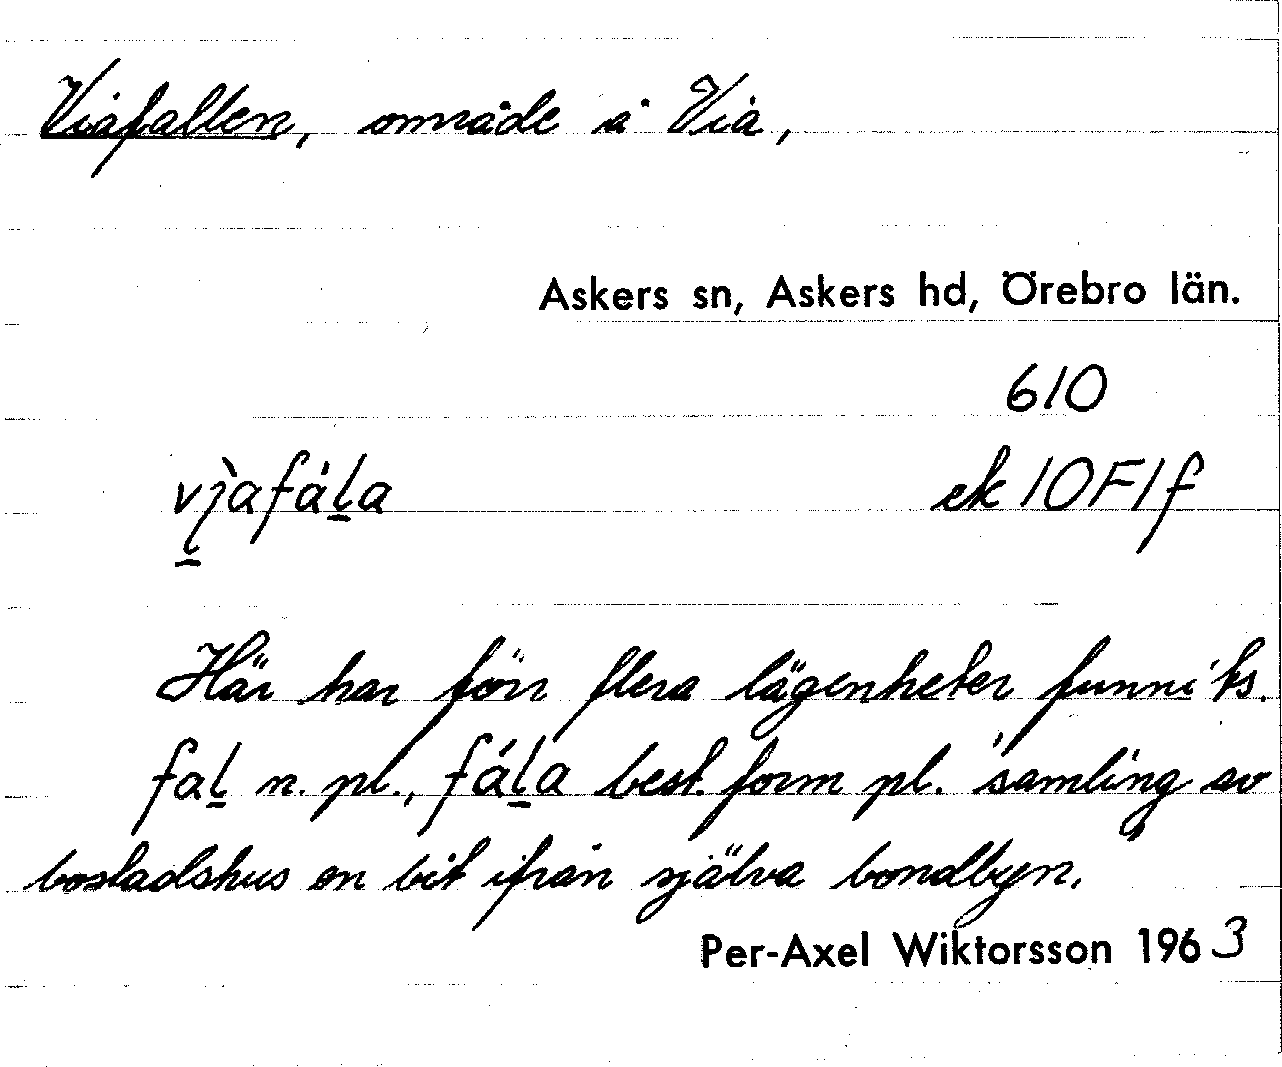 Viafallen, område å Via,
Askers sn, Askers hd, Örebro län.
610
vı̱̀afáḻa ek 10F1f
Här har förr flera lägenheter funnits.
faḻ n. pl., fáḻa best. form pl. 'samling av
bostadshus en bit ifrån själva bondbyn.'
Per-Axel Wiktorsson 1963